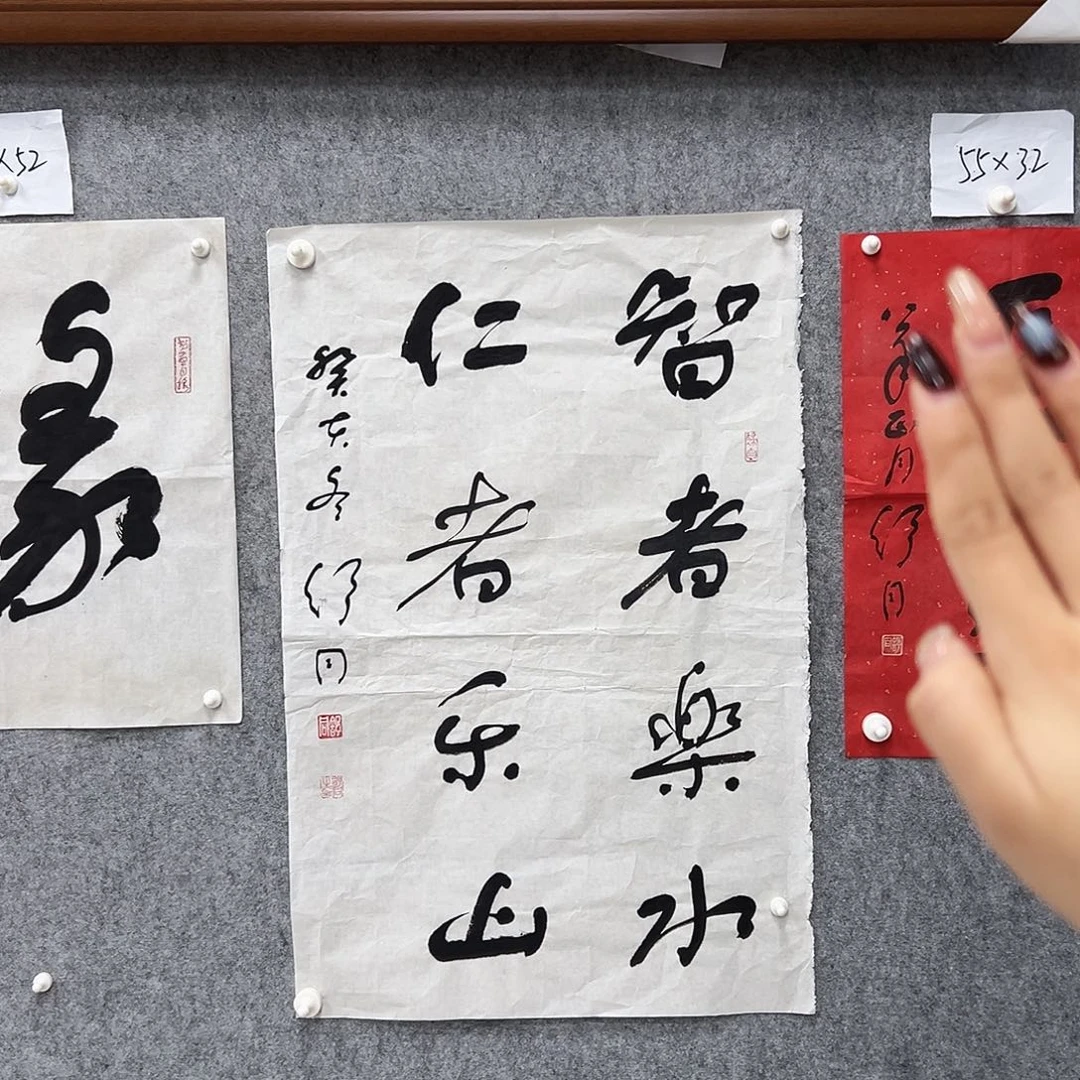 ×52
55×32
智者樂水
仁者乐山
癸亥冬
舒同
正月
舒同